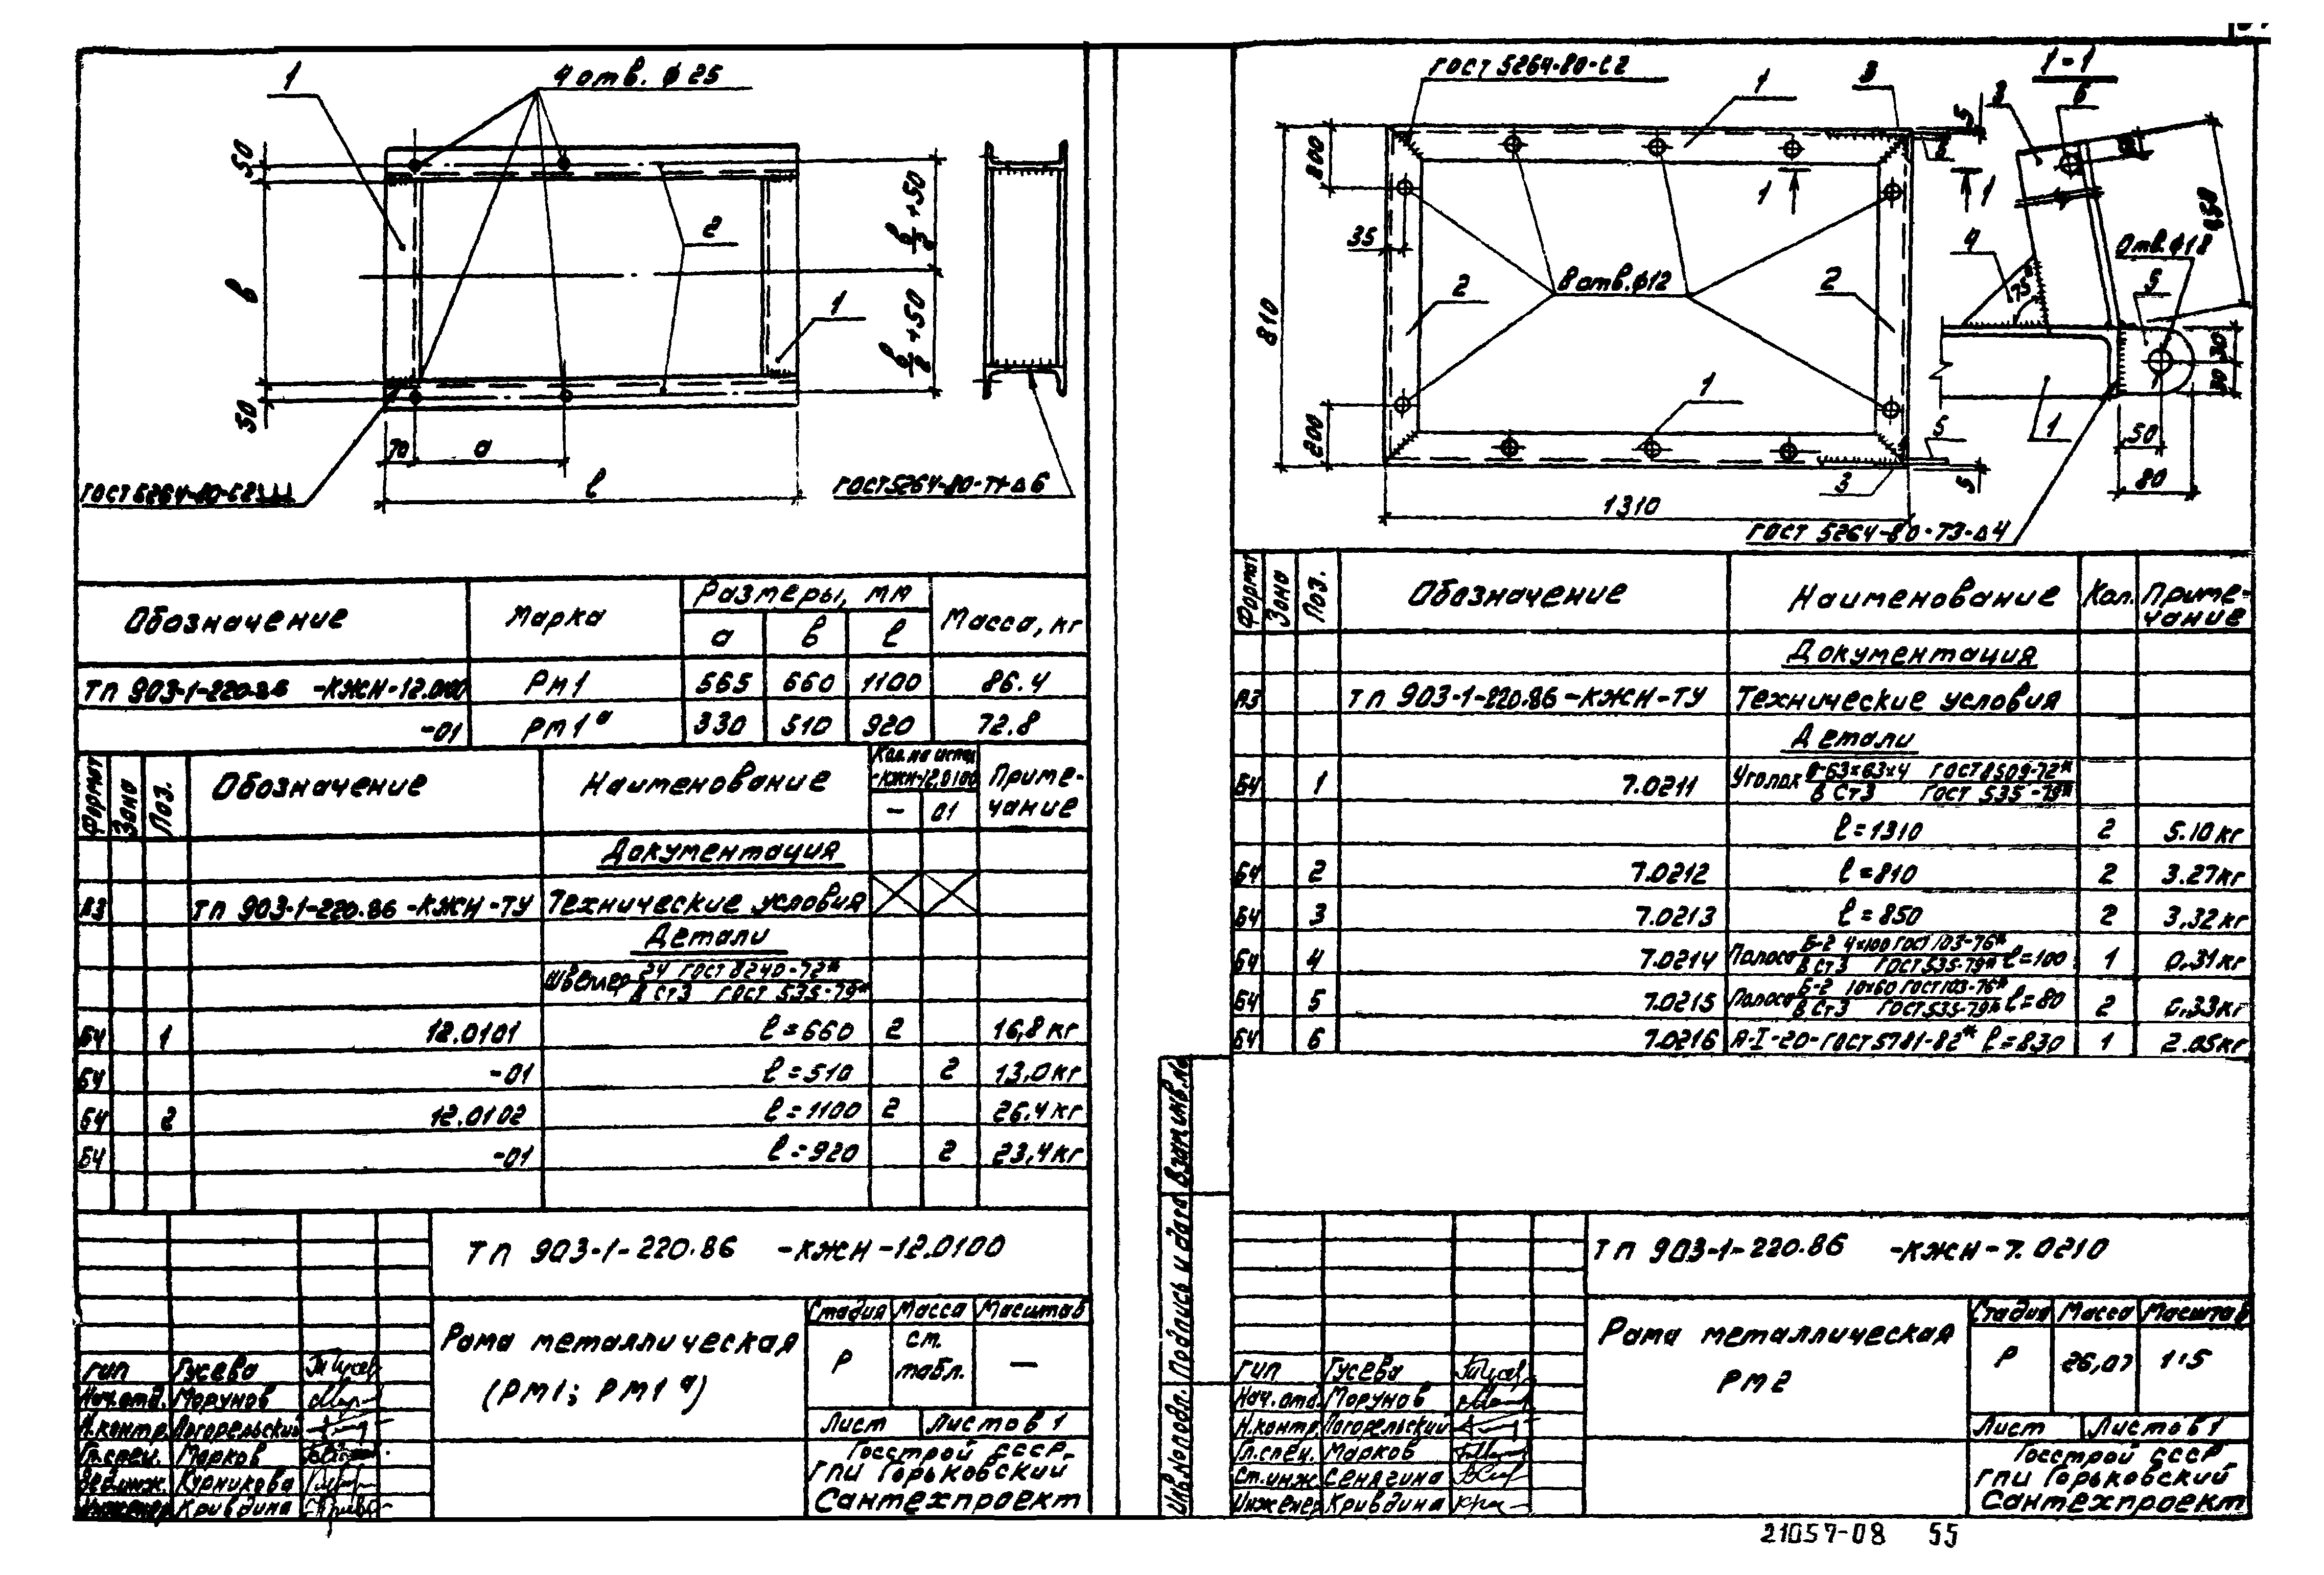 1
4 отв. ф 25
50
в
50
2
1
в/2 +50
в/2 +50
70
а
ℓ
ГОСТ 5264-80-С2
ГОСТ 5264-80-Т1-Δ6
Обозначение Марка Размеры, мм Масса, кг
а в ℓ
ТП 903-1-220.86 -КЖН-12.0100 Рм1 565 660 1100 86.4
-01 Рм1ª 330 510 920 72.8
Формат Зона Поз. Обозначение Наименование Кол. на испол. -КЖН-12.0100 Приме-
чание
— 01
Документация
А3 ТП 903-1-220.86 -КЖН-ТУ Технические условия
Детали
Швеллер 24 ГОСТ 8240-72*
В Ст3 ГОСТ 535-79*
БЧ 1 12.0101 ℓ=660 2 16,8 кг
БЧ -01 ℓ=510 2 13,0кг
БЧ 2 12.0102 ℓ=1100 2 26.4кг
БЧ -01 ℓ=920 2 23,4кг
ТП 903-1-220.86 -КЖН-12.0100
Рама металлическая
(РМ1; РМ1ª)
Стадия Масса Масштаб
Р см. табл. —
Лист Листов 1
ГИП Гусева
Нач.отд. Морунов
Н.контр. Погорельский
Гл.спец. Марков
Вед.инж. Курникова
Инженер Кривдина
Госстрой СССР
ГПИ Горьковский
Сантехпроект
ГОСТ 5264-80-С2
1
3
5
1-1
3
6
200
810
35
1
1
2
8 отв. ф12
2
200
1
5
3
5
1310
ГОСТ 5264-80-Т3-Δ4
4
75°
Отв. ф18
5
850
30
30
1
50
80
Формат Зона Поз. Обозначение Наименование Кол. Приме-
чание
Документация
А3 ТП 903-1-220.86-КЖН-ТУ Технические условия
Детали
БЧ 1 7.0211 Уголок Б-63×63×4 ГОСТ 8509-72*
В Ст3 ГОСТ 535-79*
ℓ=1310 2 5.10кг
БЧ 2 7.0212 ℓ=810 2 3.27кг
БЧ 3 7.0213 ℓ=850 2 3,32кг
БЧ 4 7.0214 Полоса Б-2 4×100 ГОСТ 103-76*
В Ст3 ГОСТ 535-79* ℓ=100 1 0,31кг
БЧ 5 7.0215 Полоса Б-2 10×60 ГОСТ 103-76*
В Ст3 ГОСТ 535-79* ℓ=80 2 0,33кг
БЧ 6 7.0216 А-I-20-ГОСТ 5781-82* ℓ=830 1 2.05кг
Взам.инв.№
Подпись и дата
Инв.№ подл.
ТП 903-1-220.86 -КЖН-7.0210
Рама металлическая
РМ2
Стадия Масса Масштаб
Р 26,07 1:5
Лист Листов 1
ГИП Гусева
Нач.отд. Морунов
Н.контр. Погорельский
Гл.спец. Марков
Ст.инж. Сенягина
Инженер Кривдина
Госстрой СССР
ГПИ Горьковский
Сантехпроект
21057-08 55